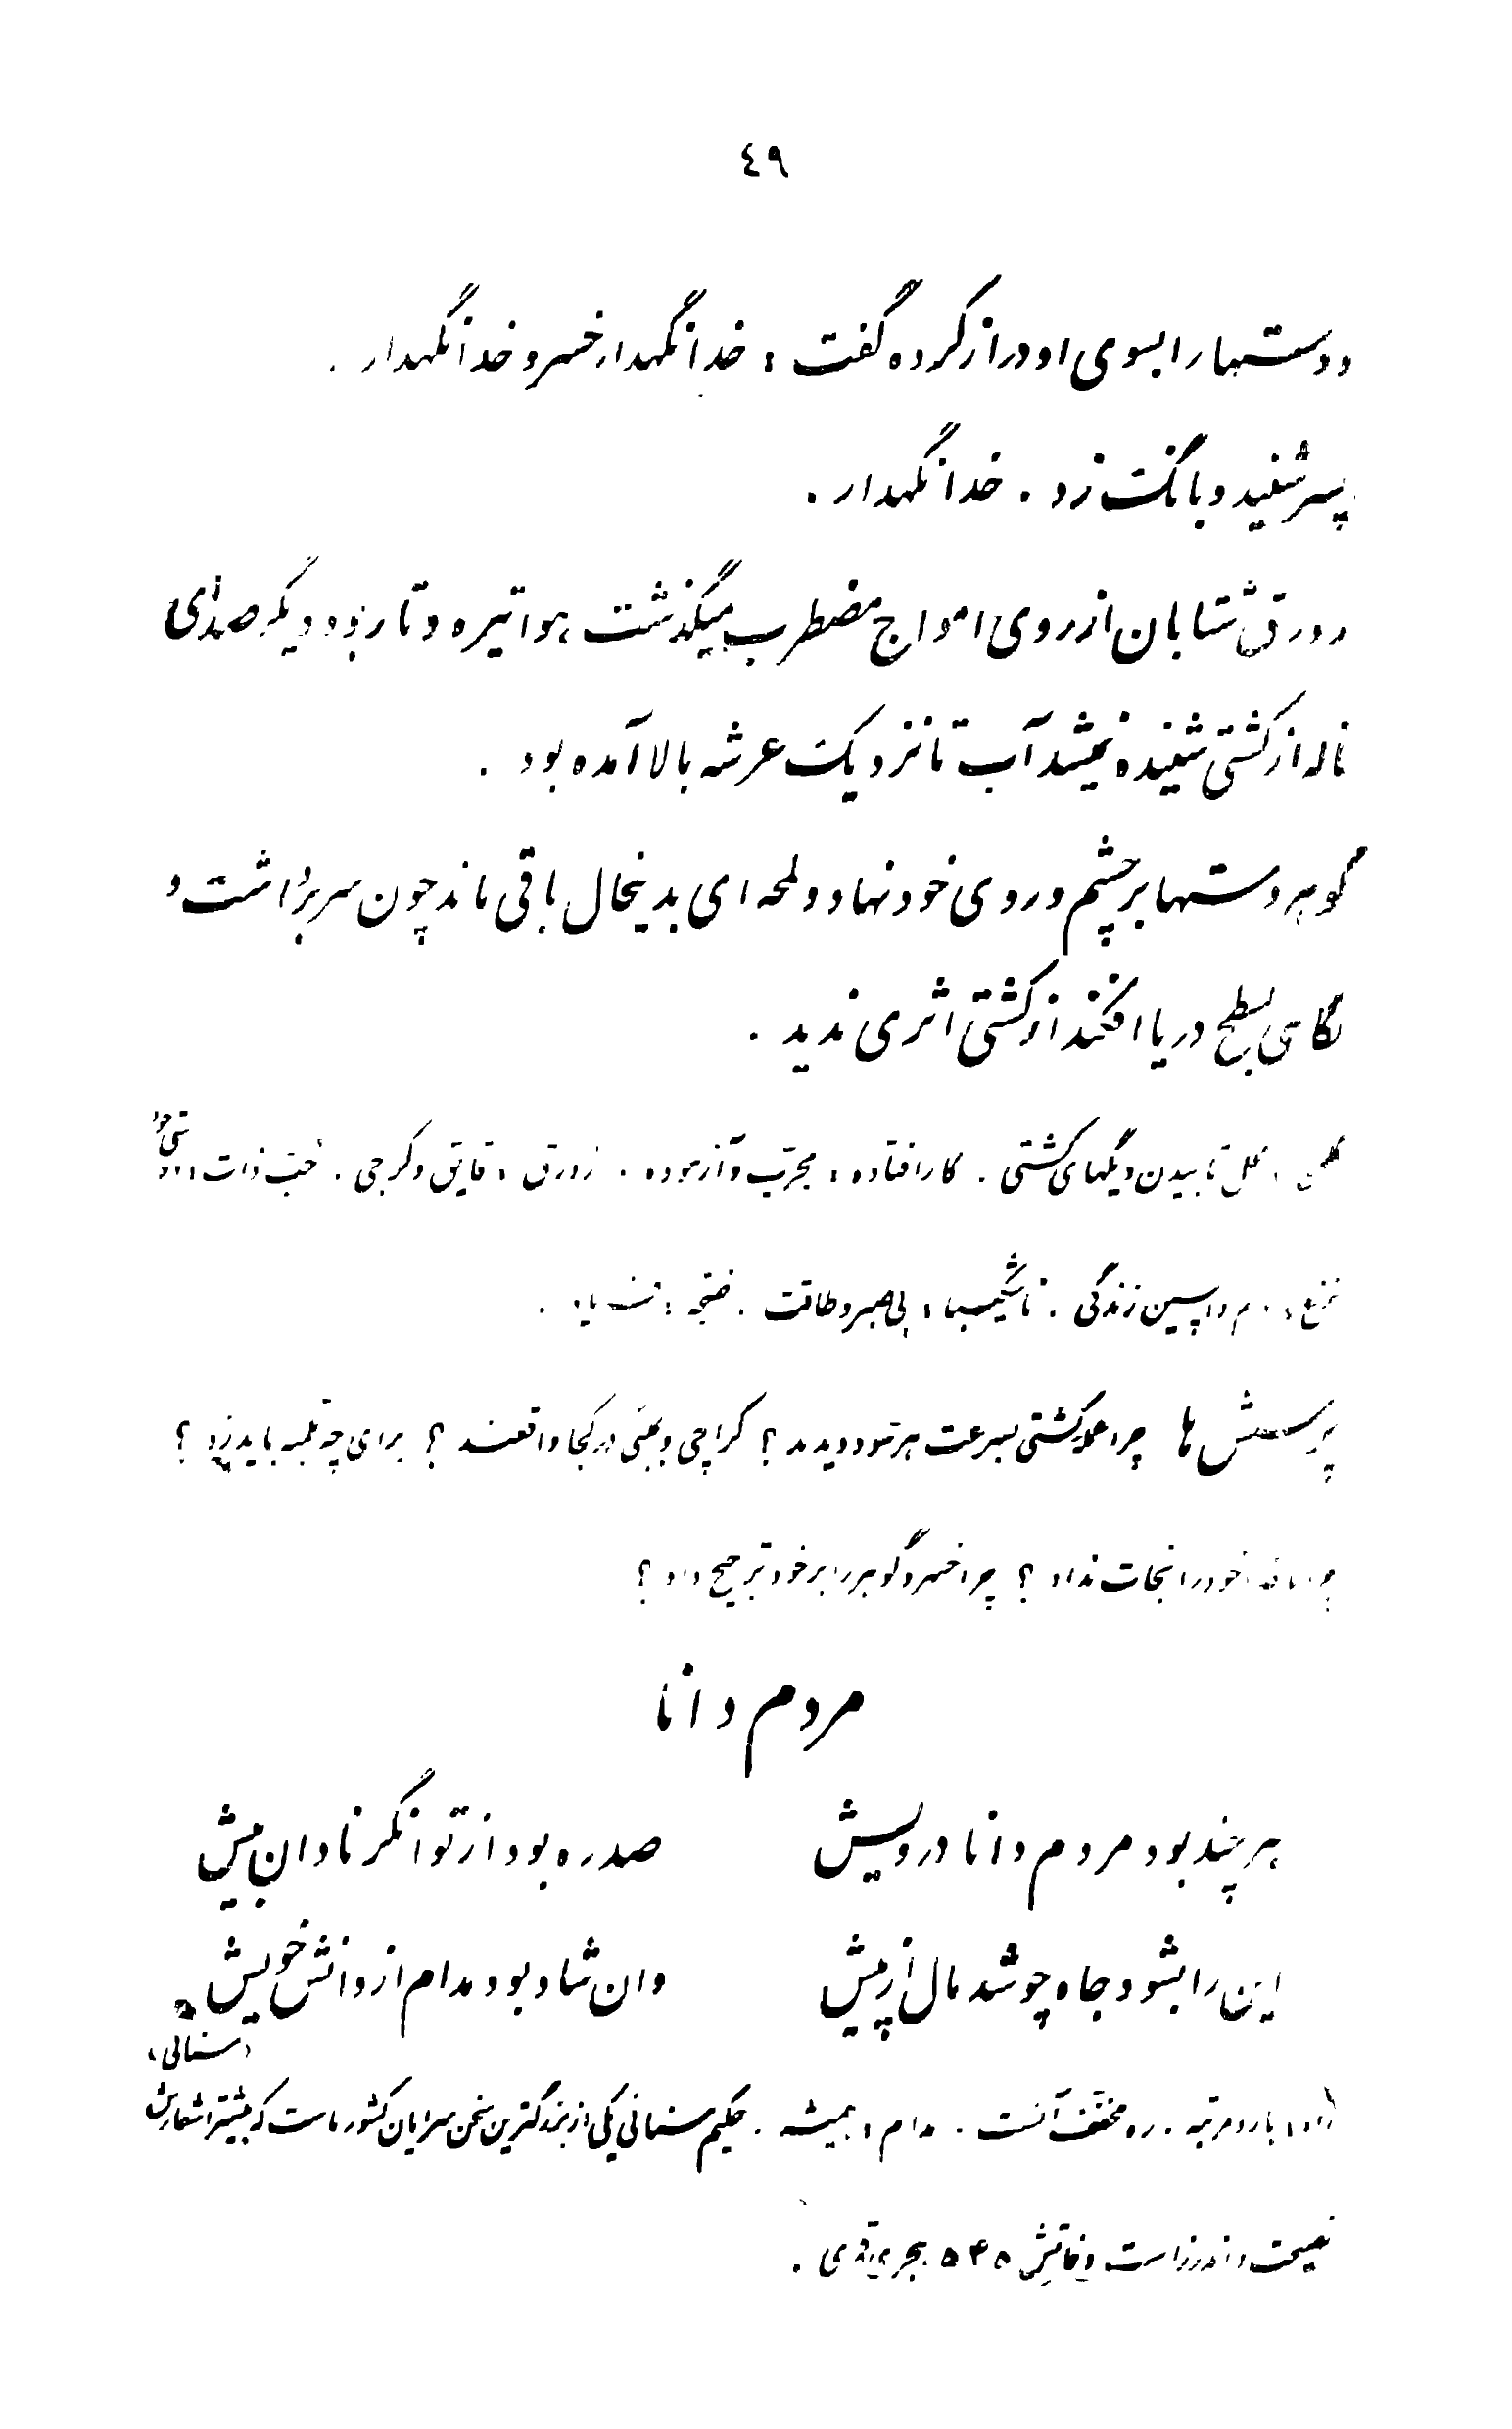 ٤٩
ودستها را بسوی او دراز کرده گفت ، خدا نگهدار خسرو خدا نگهدار .
پسر شنید و بانگ زد . خدا نگهدار .
زورق شتابان از روی امواج مضطرب میگذشت هوا تیره و تار بود و دیگر صدای
ناله از کشتی شنیده نمیشد آب تا نزدیک عرشه بالا آمده بود .
گوهر دستها بر چشم و روی خود نهاد و لمحه ای بدینحال باقی ماند چون سر برداشت و
نگاهی بسطح دریا افکند از کشتی اثری ندید .
محل تابیدن دیگهای کشتی . کار افتاده ، مجرّب و آزموده . زورق ، قایق و کرجی . حبّ ذات ، دوستی خود
نزع ، دم واپسین زندگی . ناشکیبا ، بی صبر و طاقت . ضجّه ،
پرسش ها چرا عملۀ کشتی بسرعت هر سو دویدند ؟ کراچی و بمبئی در کجا واقعند ؟ برای چه تلمبه باید زد ؟
خود را نجات نداد ؟ چرا خسرو گوهر را بر خود ترجیح داد ؟
مردم دانا
هر چند بود مردم دانا درویش صد ره بود از توانگر نادان بیش
این را بشود جاه چو شد مال از پیش وان شاد بود مدام از دانش خویش
(سنائی)
بار و مرتبه . ره مخفّف آنست . مدام ، همیشه . حکیم سنائی یکی از بزرگترین سخن سرایان کشور ماست که بیشتر اشعارش
نصیحت و اندرز است وفاتش ۵۴۵ هجری قمری .